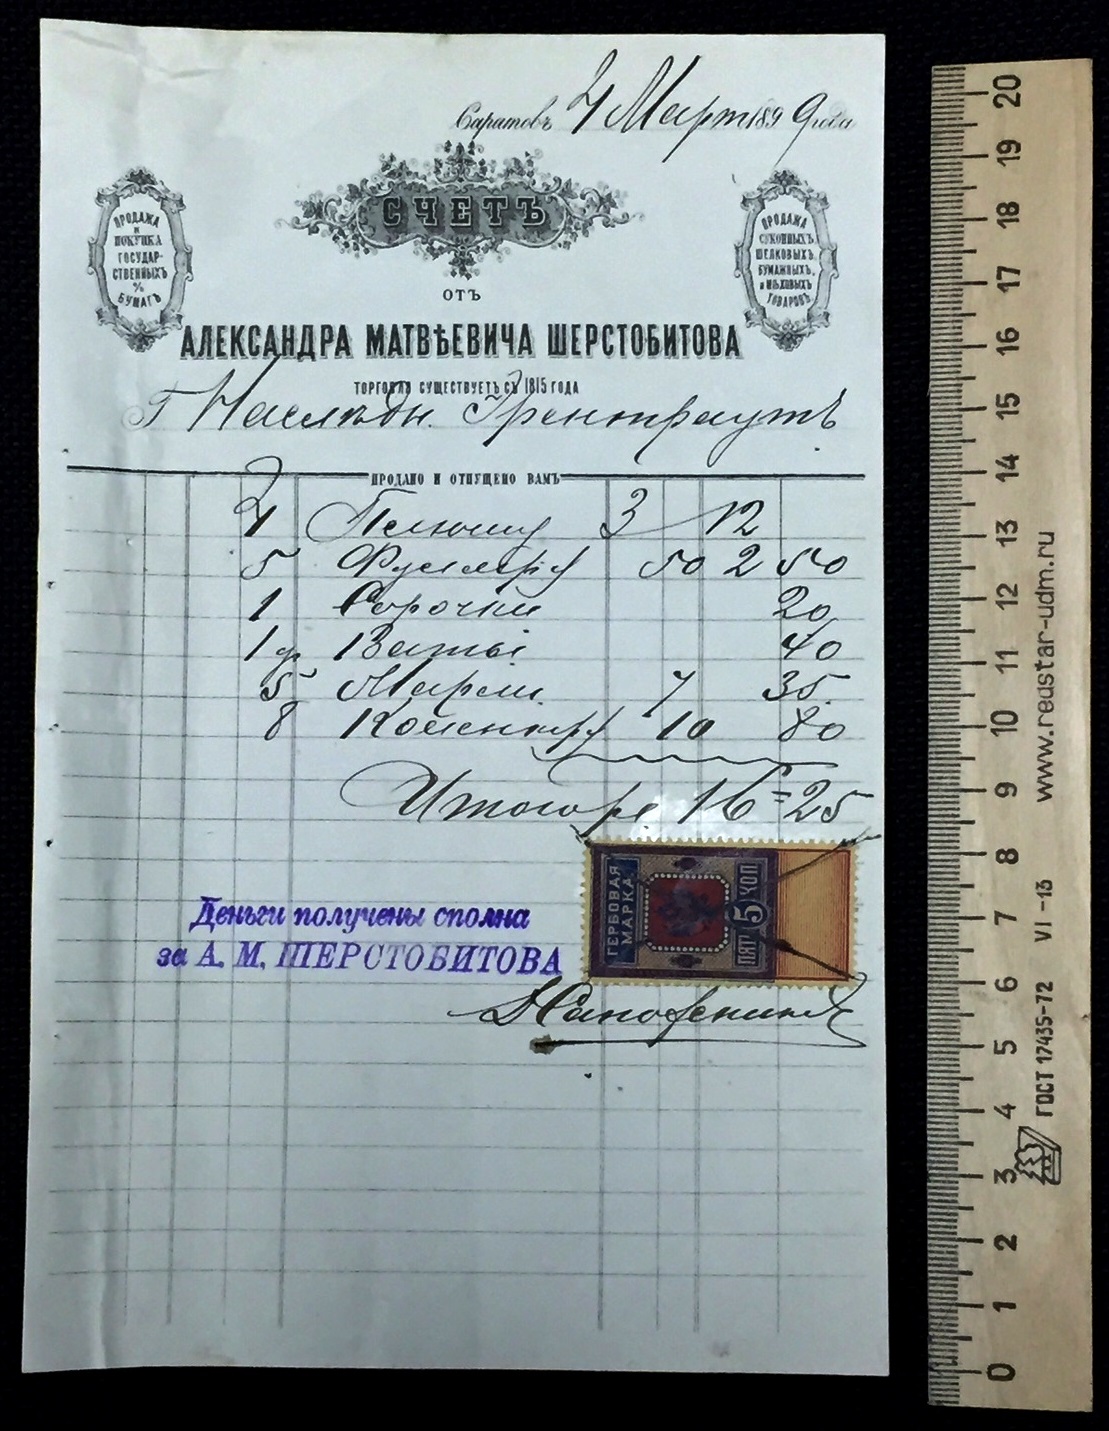 Саратовъ 4 Март 1899 года
ПРОДАЖА
И
ПОКУПКА
ГОСУДАР-
СТВЕННЫХЪ
%
БУМАГЪ
СЧЕТЪ
ПРОДАЖА
СУКОННЫХЪ,
ШЕЛКОВЫХЪ,
БУМАЖНЫХЪ,
и МѢХОВЫХЪ
ТОВАРОВЪ
ОТЪ
АЛЕКСАНДРА МАТВѢЕВИЧА ШЕРСТОБИТОВА
ТОРГОВЛЯ СУЩЕСТВУЕТЪ СЪ 1815 ГОДА
Г Наслѣдн. Эрентраутъ
ПРОДАНО И ОТПУЩЕНО ВАМЪ
4 Плюшу 3 12
5 50 2 50
1 Сорочки 20
1 ф Ваты 40
5 Марли 7 35
8 10 80
Итого 16=25
ГЕРБОВАЯ МАРКА
5 ПЯТЬ КОП
Деньги получены сполна
за А. М. ШЕРСТОБИТОВА
20
19
18
17
16
15
14
13
12
11
10
9
8
7
6
5
4
3
2
1
0
www.redstar-udm.ru
VI-13
ГОСТ 17435-72